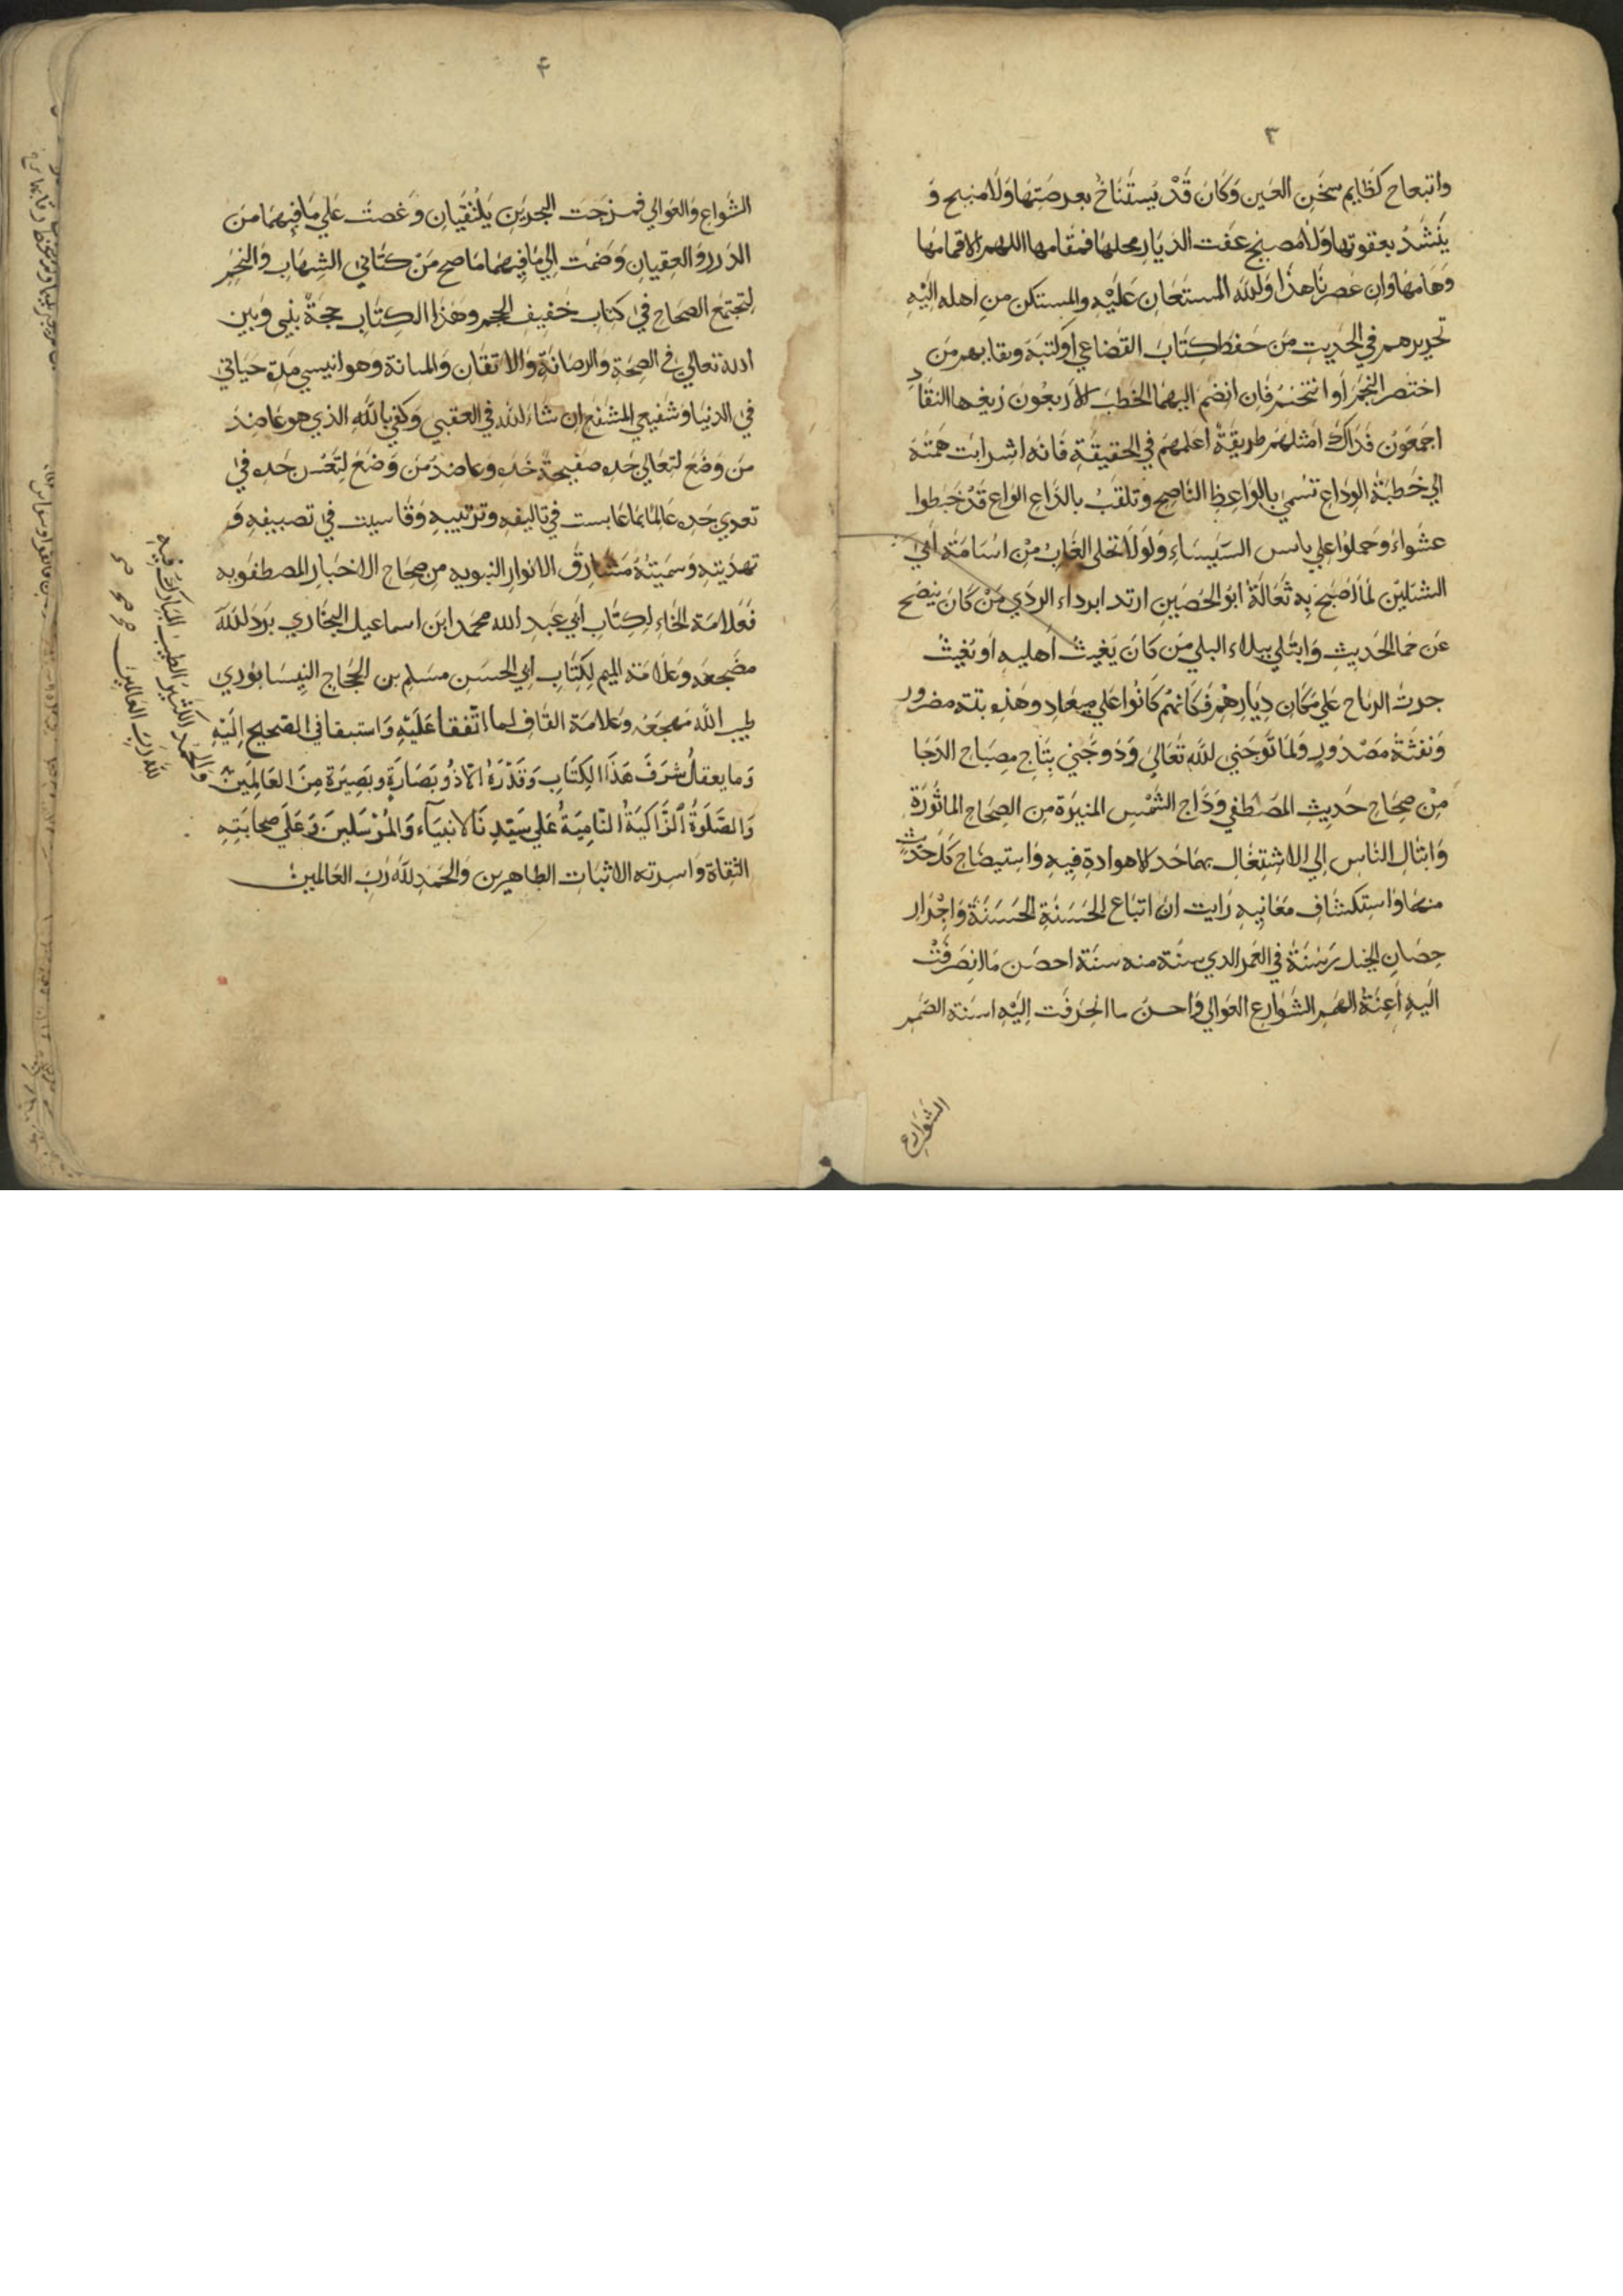 ٣
واتبعاج كظايم سخن العين وكان قد يستناخ بعرصتها ولا منبح و
ينشد بعقوتها ولا مصيخ عفت الديار محلها فمقامها اللهم الا قمامها
وهامها وان عصرنا هذا ولله المستعان عليه والمستكن من اهله اليه
تحريرهم في الحديث من حفظ كتاب القضاعي او كتبه ونقابهم من
اختصر النجم او انتخبه فان انضم اليهما الخطب الاربعون زيغها النقاد
اجمعون فذاك امثلهم طريقة اعلمهم في الحقيقة فانه اشرابت همته
الي خطبة الوداع تسمي بالواعظ الناصح وتلقب بالداع الواع قد خبطوا
عشواء وحملوا علي يابس السيساء ولولا تخلي الغاب من اسامة ابي
الشبلين لما اضبح به ثعالة ابو الحصين ارتد ابرداء الردي من كان ينضح
عن حما الحديث وابتلي ببلاء البلي من كان يغيث اهليه او يغيث
جرت الرياح علي مكان ديارهم فكانهم كانوا علي ميعاد وهذه بثة مضرور
ونفثة مصدور ولما توجني لله تعالي ودوجني بتاج مصباح الدجا
من صحاح حديث المصطفي وداج الشمس المنيرة من الصحاح الماثورة
وانثال الناس الي الاشتغال بهما حد لا هوادة فيه واستيضاح كل حديث
منهما واستكشاف معانيه رايت ان اتباع الحسنة الحسنة واجرار
حصان الخيل رسنة في العمر الذي سنة منه سنة احصن ما انصرفت
اليه اعنة الهمم الشوارع العوالي واحسن ما انحرفت اليه اسنة الضمر
الشوارع
۴
الشواع والعوالي فمزجت البحرين يلتقيان وغصت علي ما فيهما من
الدرر والعقيان وضمت الي ما فيهما ما صح من كتابي الشهاب والنجم
لتجتمع الصحاح في كتاب خفيف الحجم وهذا الكتاب حجة بيني وبين
الله تعالي في الصحة والرصانة والاتقان والمتانة وهو انيسي مدة حياتي
في الدنيا وشفيعي المشفع ان شاء لله في العقبي وكفي بالله الذي هو عاضد
من وضع لتعالي جده صفيحة خده وعاضد من وضع لتعس جده في
تعدي حده عالما بما عابست في تاليفه وترتيبه وقاسيت في تصنيفه و
تهذيبه وسميته مشارق الانوار النبويه من صحاح الاخبار المصطفويه
فعلامة الخاء لكتاب ابي عبد الله محمد ابن اسماعيل البخاري برد لله
مضجعه وعلامة الميم لكتاب ابي الحسن مسلم بن الحجاج النيسابوري
طيب الله مهجعه وعلامة القاف لما اتفقا عليه واستبقا في الصحيح اليه
وما يعقل شرف هذا الكتاب وقدره الا ذو بصارة وبصيرة من العالمين
والصلوة الزاكية النامية علي سيدنا الانبياء والمرسلين وعلي صحابته
الثقاة واسرته الاثبات الطاهرين والحمد لله رب العالمين
والحمد الكثير الطيب المبارك فيه
لله رب العالمين